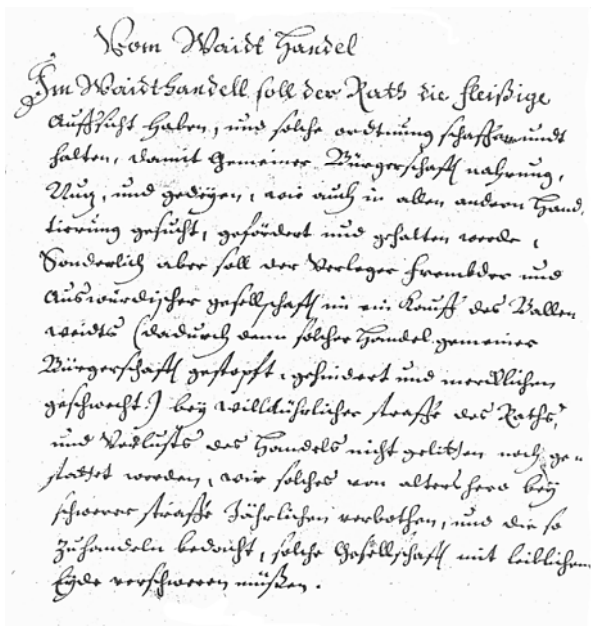 Vom Waidt Handel
Im Waidthandell soll der Rath die fleißige
Auffsicht haben, und solche ordtnung schaffen undt
halten, damit Gemeiner Bürgerschafft nahrung,
Nuz, und gedeyen, wie auch in allen andern Hand,
tierung gesucht, gefördert und gehalten werde,
Sonderlich aber soll der Verleger frembder und
Auswürdischer gesellschafft im ein Kauff des Ballen
weidts (dadurch dann solcher Handel gemeiner
Bürgerschafft gestopft, gehindert und mercklichen
geschwecht.) bey willkührlicher straffe des Raths,
und Verlusts des Handels nicht gelitten noch ge-
stattet werden, wie solches von altershero bey
schwerer straffe Jährlichen verbothen, und die so
zuhandeln bedacht, solche Gesellschafft mit leiblichen
Eyde verschweren müßen.